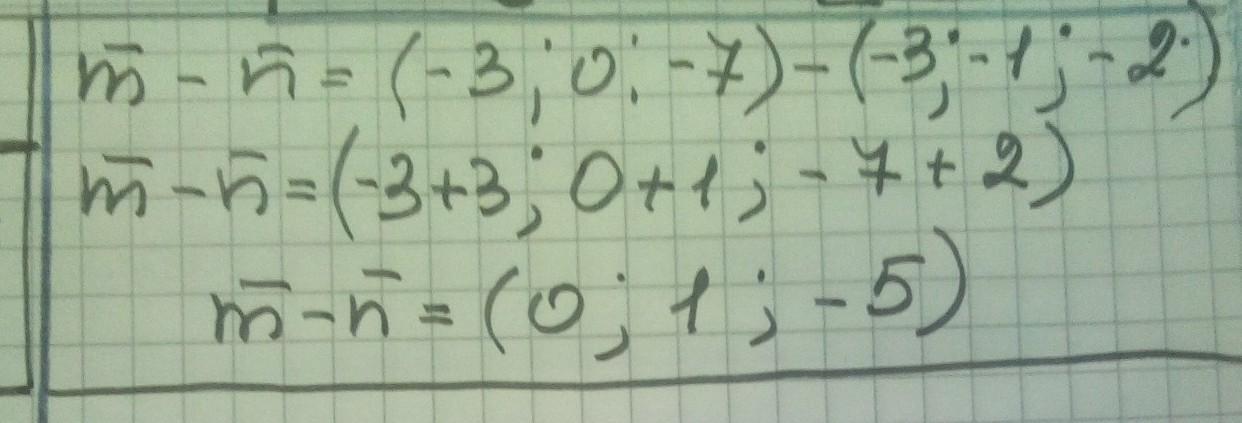 m̅ - n̅ = (-3; 0; -7) - (-3; -1; -2)
m̅ - n̅ = (-3+3; 0+1; -7+2)
m̅ - n̅ = (0; 1; -5)